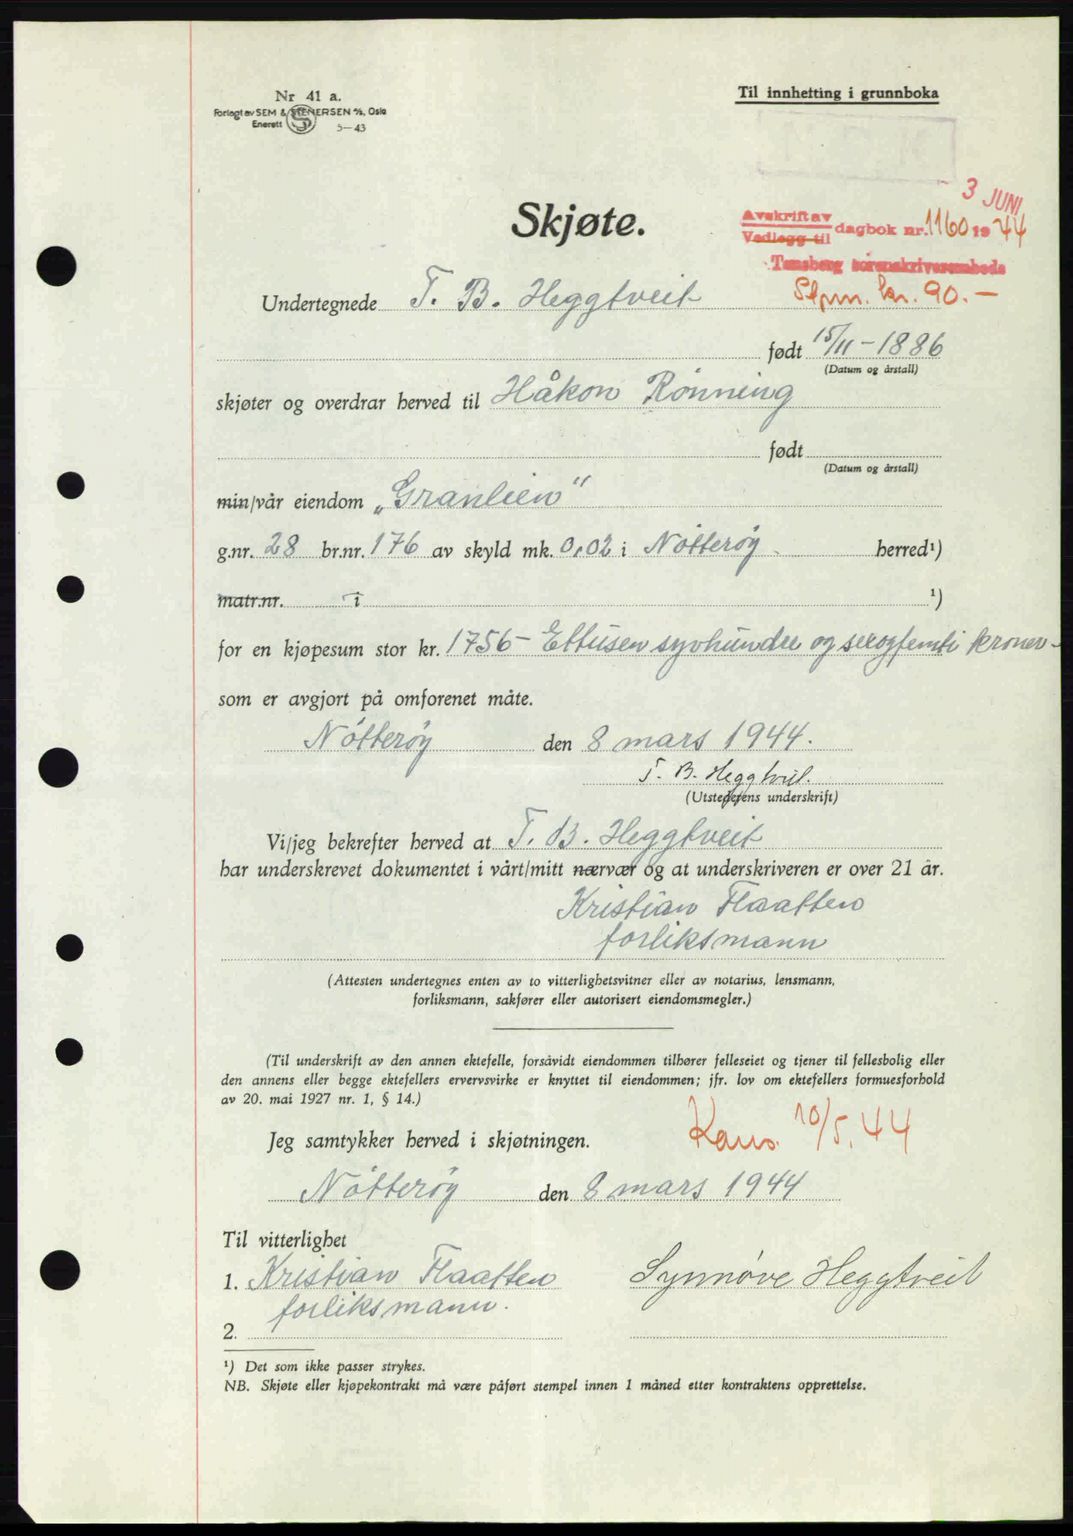 Nr 41 a.
Forlagt av SEM & STENERSEN A/S, Oslo
Enerett 5—43
Til innhefting i grunnboka
3 JUNI
Skjøte.
Avskrift av
Vedlegg til dagbok nr. 1160 1944
Tønsberg sorenskriverembede
Stpm. kr. 90.—
Undertegnede T. B. Heggtveit
født 15/11-1886
(Datum og årstall)
skjøter og overdrar herved til Håkon Rönning
født
(Datum og årstall)
min/vår eiendom „Granlien"
g.nr. 28 br.nr. 176 av skyld mk. 0,02 i Nötteröy herred¹)
matr.nr. i ¹)
for en kjøpesum stor kr. 1756- Ettusen syvhundre og seksogfemti kroner-
som er avgjort på omforenet måte.
Nötteröy den 8 mars 1944.
T. B. Heggtveit.
(Utstederens underskrift)
Vi/jeg bekrefter herved at T. B. Heggtveit
har underskrevet dokumentet i vårt/mitt nærvær og at underskriveren er over 21 år.
Kristian Flaatten
forliksmann
(Attesten undertegnes enten av to vitterlighetsvitner eller av notarius, lensmann,
forliksmann, sakfører eller autorisert eiendomsmegler.)
(Til underskrift av den annen ektefelle, forsåvidt eiendommen tilhører felleseiet og tjener til fellesbolig eller
den annens eller begge ektefellers ervervsvirke er knyttet til eiendommen; jfr. lov om ektefellers formuesforhold
av 20. mai 1927 nr. 1, § 14.)
Kons. 10/5. 44
Jeg samtykker herved i skjøtningen.
Nötteröy den 8 mars 1944
Til vitterlighet
1. Kristian Flaatten Synnøve Heggtveit
forliksmann.
2.
¹) Det som ikke passer strykes.
NB. Skjøte eller kjøpekontrakt må være påført stempel innen 1 måned etter kontraktens opprettelse.